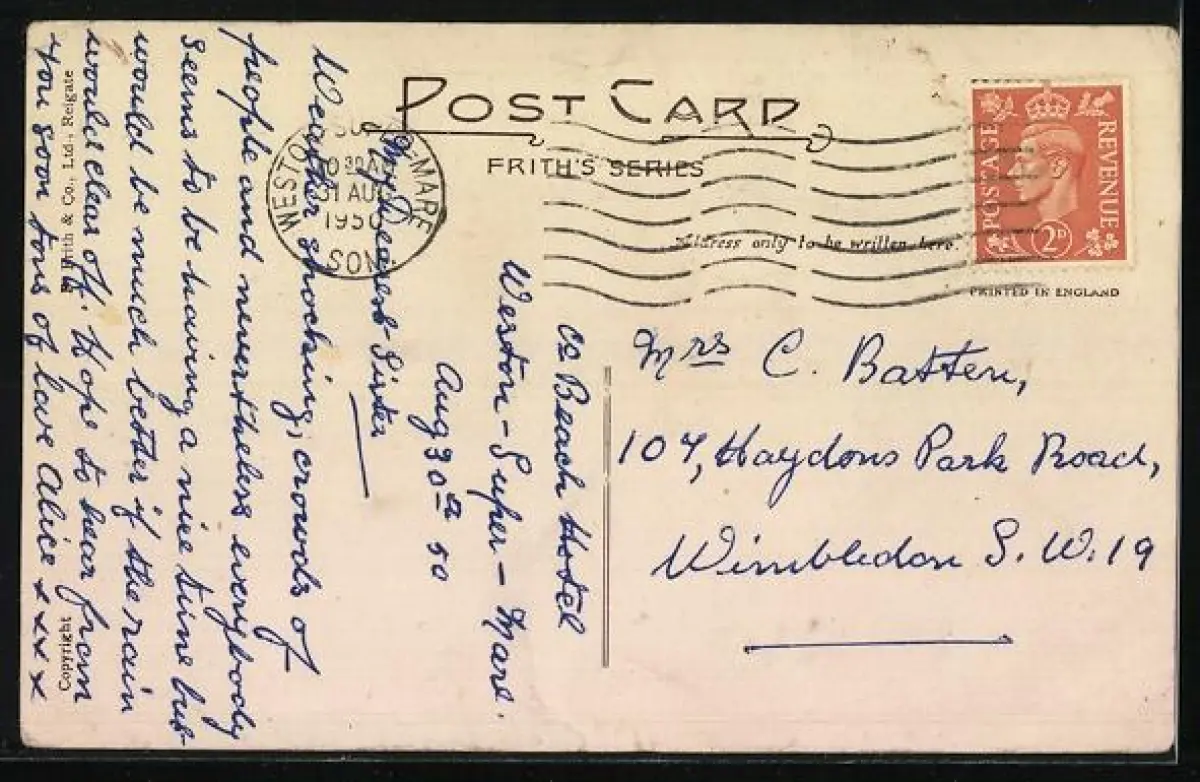 POST CARD
FRITH'S SERIES
Address only to be written here.
POSTAGE REVENUE
2D
PRINTED IN ENGLAND
WESTON MARE
30 A
31 AUG
1950
SOM
C/o Beach Hotel
Weston-Super-Mare.
Aug 30th 50
My Dearest Sister
Weather shocking, crowds of
people and nevertheless everybody
seems to be having a nice time but
would be much better if the rain
would clear off. Hope to hear from
you soon tons of love Alice x x x x
Mrs C. Batten,
107, Haydons Park Road,
Wimbledon S.W.19
Copyright Frith & Co., Ltd., Reigate